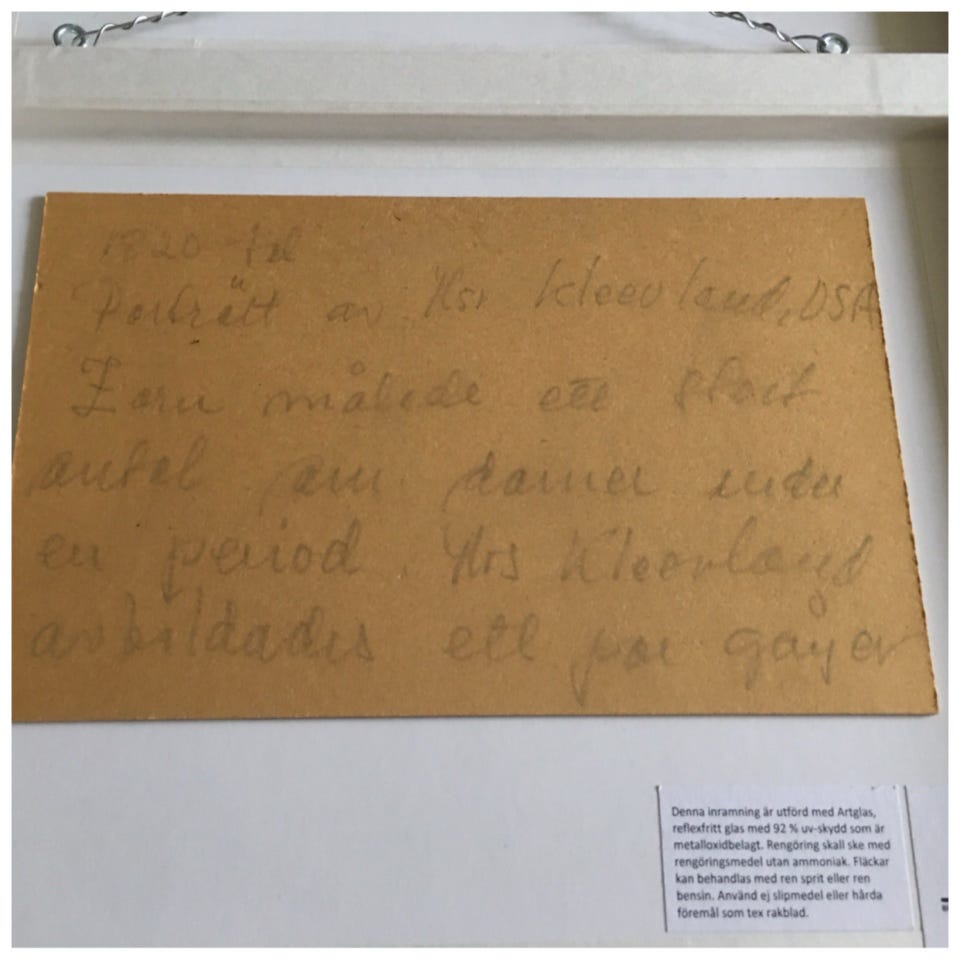 1820-tal
Porträtt av Mrs Kleevland, USA
Zorn målade ett stort
antal am. damer under
en period. Mrs Kleevland
avbildades ett par gånger
Denna inramning är utförd med Artglas,
reflexfritt glas med 92 % uv-skydd som är
metalloxidbelagt. Rengöring skall ske med
rengöringsmedel utan ammoniak. Fläckar
kan behandlas med ren sprit eller ren
bensin. Använd ej slipmedel eller hårda
föremål som tex rakblad.